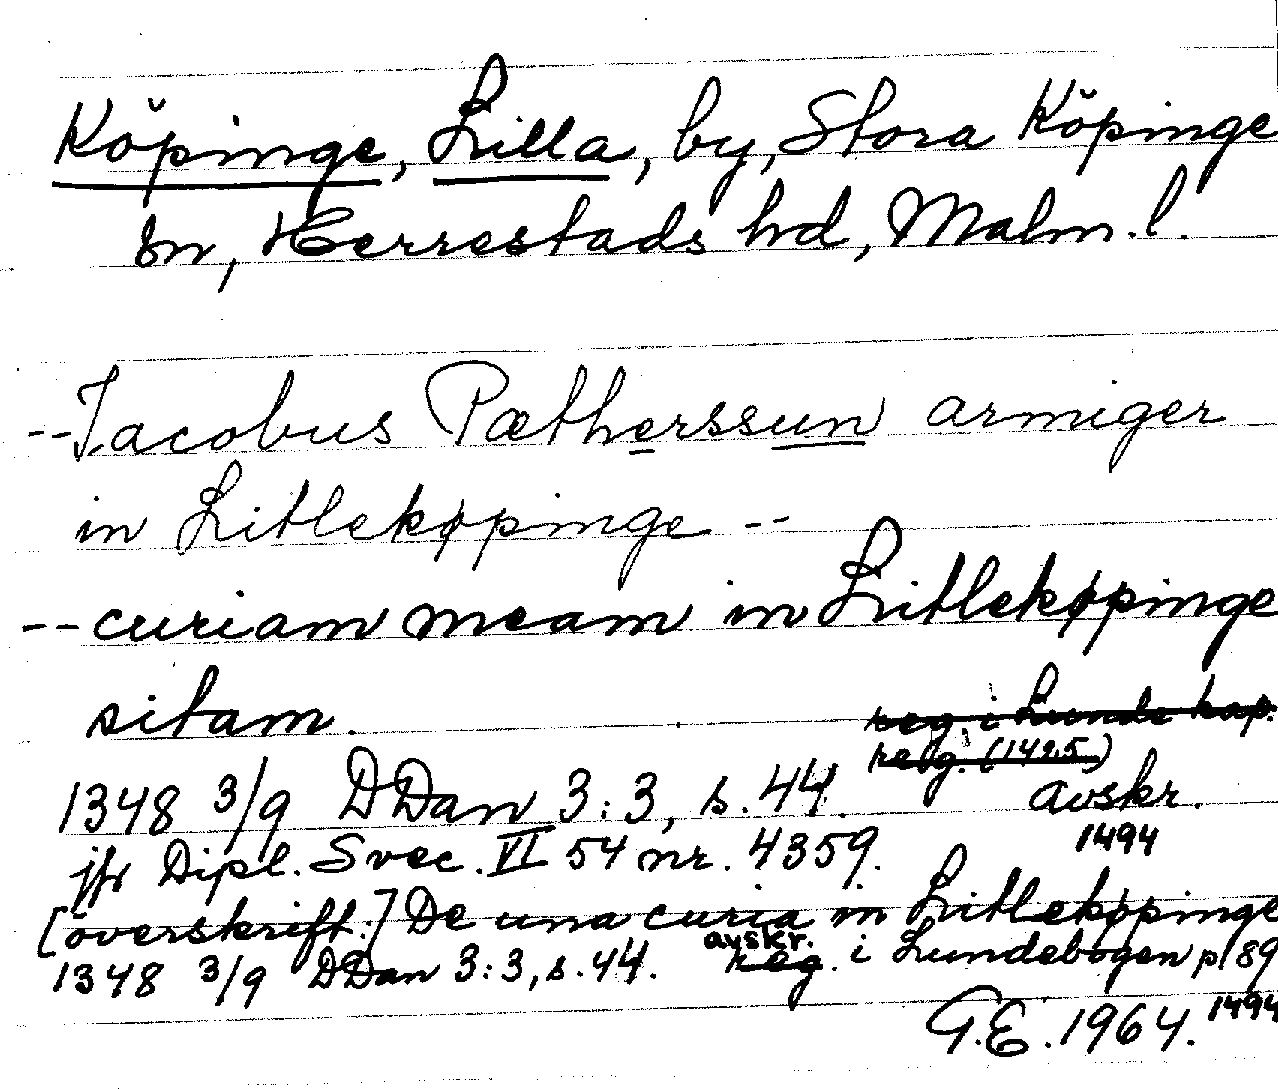 Köpinge, Lilla, by, Stora Köpinge
sn, Herrestads hd, Malm.l.
--Jacobus Pætherssun armiger
in Litlekøpinge --
--curiam meam in Litlekøpinge
sitam.
reg. i Lunde kap.
reg. (1494.5)
1348 3/9 DDan 3:3, s.44. avskr.
1494
jfr Dipl. Svec. VI 54 nr. 4359.
[överskrift:] De una curia in Litlekøpinge
1348 3/9 DDan 3:3, s.44. avskr. reg. i Lundebogen p 89
1494
G.E. 1964.